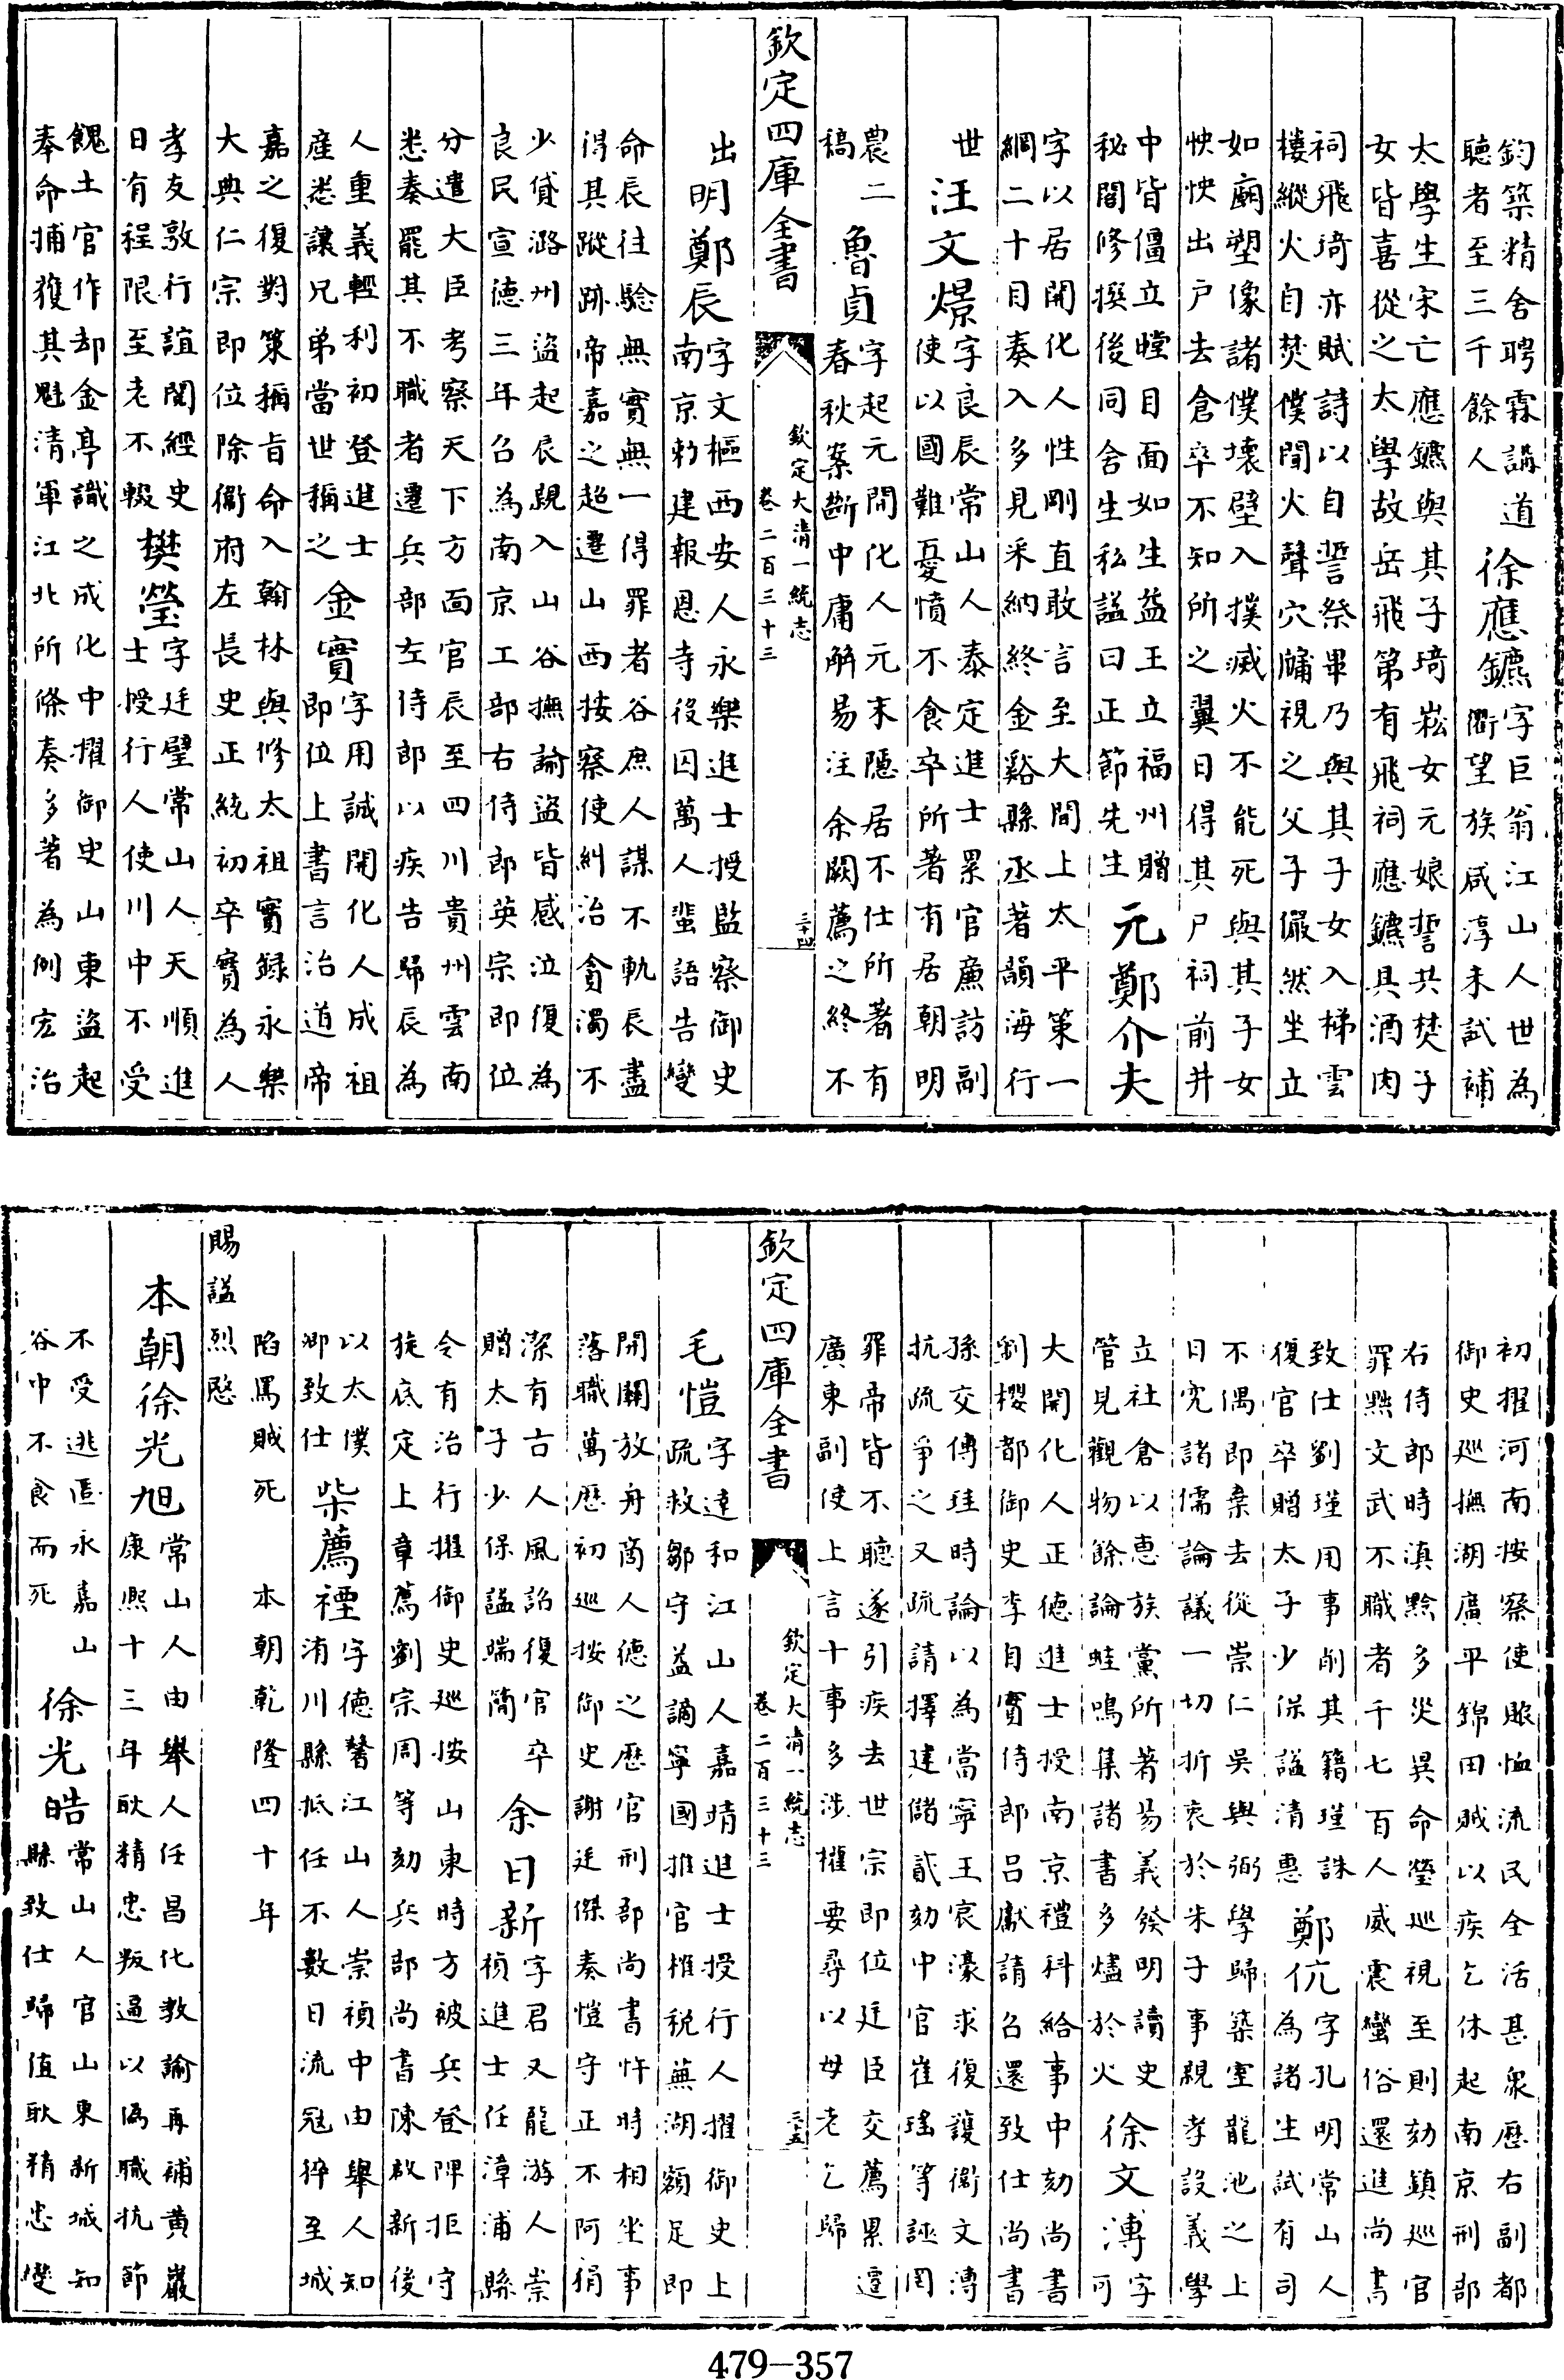 鈞築精舍聘霖講道
聽者至三千餘人
徐應鑣
字巨翁江山人世為
衢望族咸淳末試補
太學生宋亡應鑣與其子琦崧女元娘誓共焚子
女皆喜從之太學故岳飛第有飛祠應鑣具酒肉
祠飛琦亦賦詩以自誓祭畢乃與其子女入梯雲
樓縱火自焚僕聞火聲穴牖視之父子儼然坐立
如廟塑像諸僕壞壁入撲滅火不能死與其子女
怏怏出户去倉卒不知所之翼日得其尸祠前井
中皆僵立瞠目面如生益王立福州贈
秘閣修撰後同舍生私諡曰正節先生
元鄭介夫
字以居開化人性剛直敢言至大間上太平策一
綱二十目奏入多見采納終金谿縣丞著韻海行
世
汪文㬌
字良辰常山人泰定進士累官廉訪副
使以國難憂憤不食卒所著有居朝明
農二
稿
魯貞
字起元開化人元末隱居不仕所著有
春秋案斷中庸解易注余闕薦之終不
欽定四庫全書
欽定大清一統志
卷二百三十三
三十四
出
明鄭辰
字文樞西安人永樂進士授監察御史
南京勅建報恩寺役囚萬人蜚語告變
命辰往驗無實無一得罪者谷庶人謀不軌辰盡
得其蹤跡帝嘉之超遷山西按察使糾治貪濁不
少貸潞州盜起辰覞入山谷撫諭盜皆感泣復為
良民宣德三年召為南京工部右侍郎英宗即位
分遣大臣考察天下方面官辰至四川貴州雲南
悉奏罷其不職者遷兵部左侍郎以疾告歸辰為
人重義輕利初登進士
產悉讓兄弟當世稱之
金實
字用誠開化人成祖
即位上書言治道帝
嘉之復對策稱旨命入翰林與修太祖實録永樂
大典仁宗即位除衞府左長史正統初卒實為人
孝友敦行誼閱經史
日有程限至老不輟
樊瑩
字廷璧常山人天順進
士授行人使川中不受
餽土官作却金亭識之成化中擢御史山東盜起
奉命捕獲其魁清軍江北所條奏多著為例宏治
初擢河南按察使賑恤流民全活甚衆歷右副都
御史巡撫湖廣平錦田賊以疾乞休起南京刑部
右侍郎時滇黔多災異命瑩巡視至則劾鎮巡官
罪黜文武不職者千七百人威震蠻俗還進尚書
致仕劉瑾用事削其籍瑾誅
復官卒贈太子少保諡清惠
鄭伉
字孔明常山人
為諸生試有司
不偶即棄去從崇仁吳與弼學歸築室龍池之上
日究諸儒論議一切折衷於朱子事親孝設義學
立社倉以惠族黨所著易義發明讀史
管見觀物餘論蛙鳴集諸書多燼於火
徐文溥
字
可
大開化人正德進士授南京禮科給事中劾尚書
劉櫻都御史李自實侍郎呂獻請召還致仕尚書
孫交傅珪時論以為當寧王宸濠求復護衞文溥
抗疏爭之又疏請擇建儲貳劾中官崔瑤等誣罔
罪帝皆不聽遂引疾去世宗即位廷臣交薦累遷
廣東副使上言十事多涉權要尋以母老乞歸
欽定四庫全書
欽定大清一統志
卷二百三十三
三十五
毛愷
字達和江山人嘉靖進士授行人擢御史上
疏救鄒守益謫寧國推官榷稅蕪湖額足即
開關放舟商人德之歷官刑部尚書忤時相坐事
落職萬厯初巡按御史謝廷傑奏愷守正不阿狷
潔有古人風詔復官卒
贈太子少保諡端簡
余日新
字君又龍游人崇
禎進士任漳浦縣
令有治行擢御史巡按山東時方被兵登陴拒守
旋底定上章薦劉宗周等劾兵部尚書陳啟新後
以太僕
卿致仕
柴薦禋
字德馨江山人崇禎中由舉人知
洧川縣抵任不數日流冦猝至城
陷罵賊死 本朝乾隆四十年
賜諡烈愍
本朝徐光旭
常山人由舉人任昌化教諭再補黄巖
康熙十三年耿精忠叛逼以僞職抗節
不受逃匿永嘉山
谷中不食而死
徐光皓
常山人官山東新城知
縣致仕歸值耿精忠變
479-357